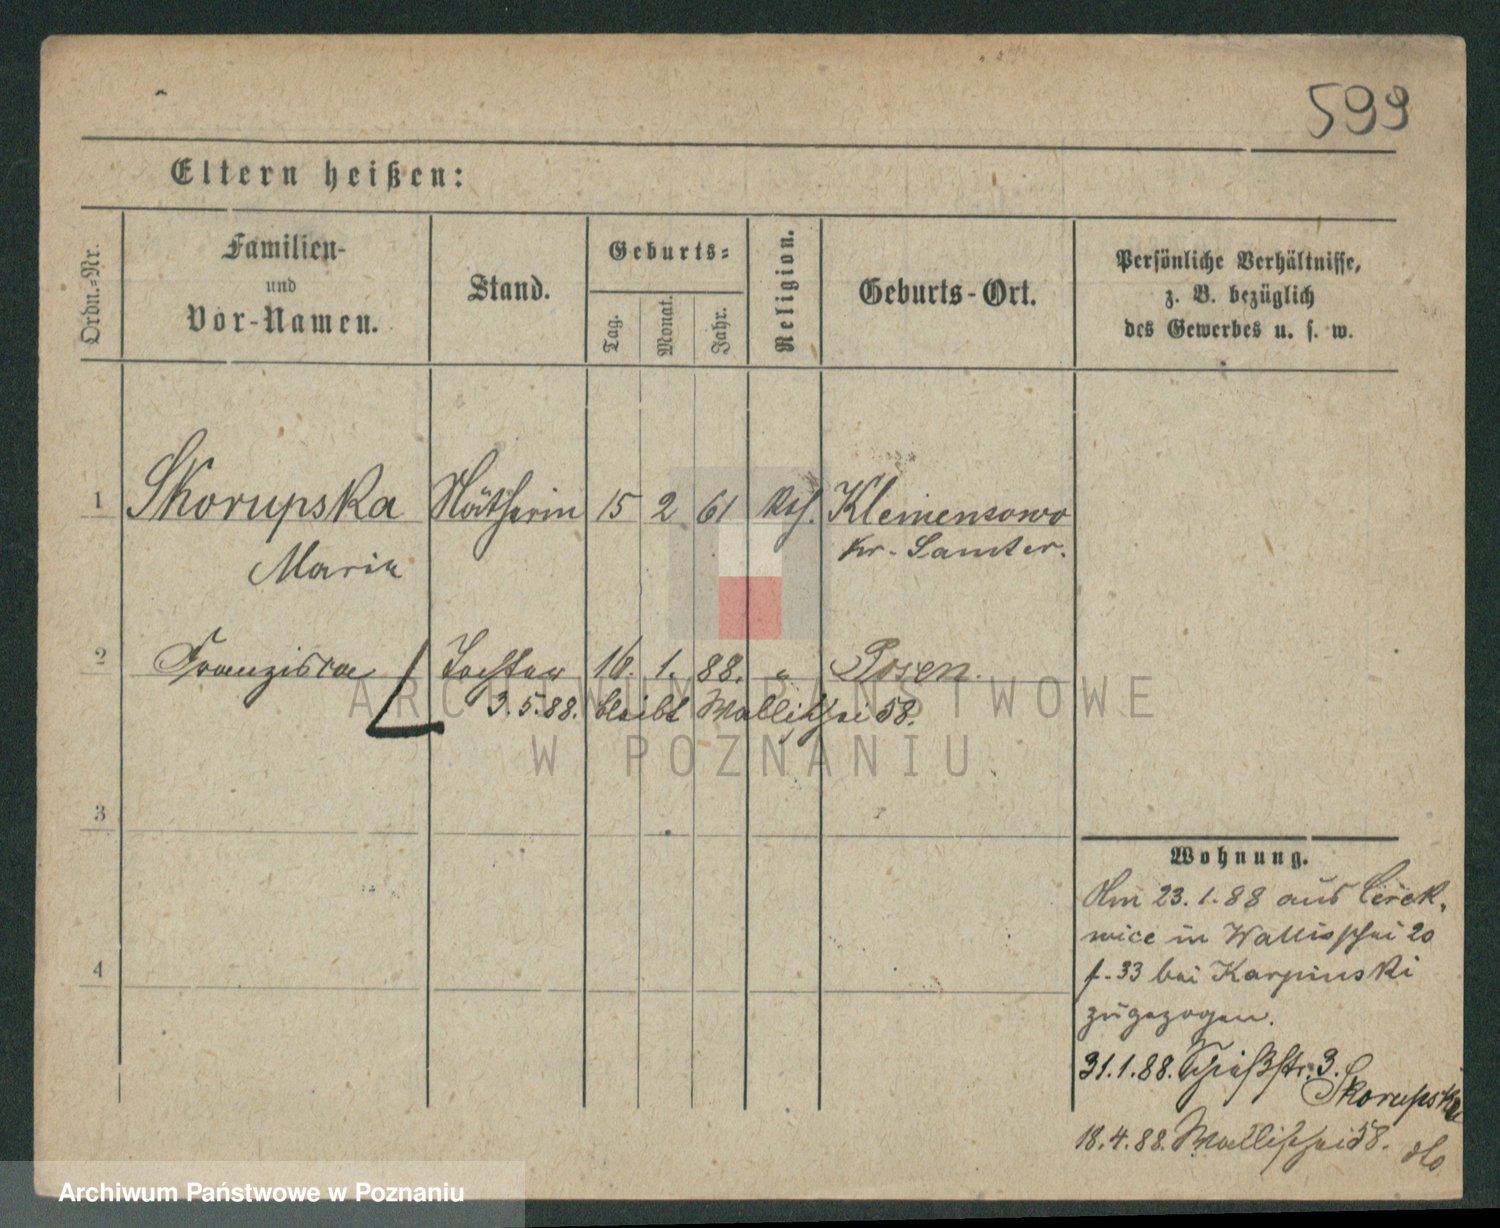 599
Eltern heißen:
Ordn.-Nr.
Familien-
und
Vor-Namen.
Stand.
Geburts-
Tag.
Monat.
Jahr.
Religion.
Geburts-Ort.
Persönliche Verhältnisse,
z. B. bezüglich
des Gewerbes u. s. w.
1 Skorupska Nätherin 15 2 61 Kth. Klemensowo
Maria Kr. Samter.
2 Franziska Tochter 16. 1. 88. " Posen.
3.5.88. bleibt Wallischei 58.
ARCHIWUM PAŃSTWOWE
W POZNANIU
3
4
Wohnung.
Am 23.1.88 aus Cerek-
wice in Wallischei 20
f. 33 bei Karpinski
zugezogen.
31.1.88. Schießstr. 3.
Skorupska
18.4.88. Wallischei 58. dto
Archiwum Państwowe w Poznaniu